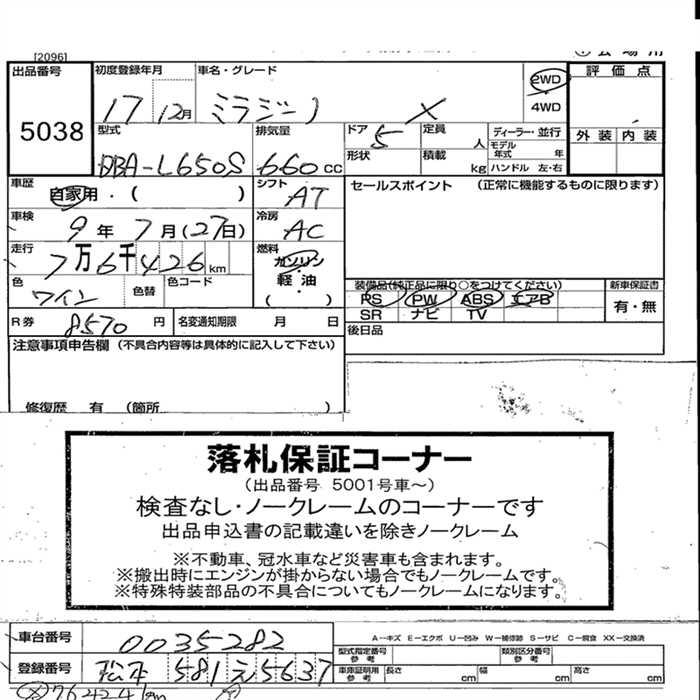 [2096]
出品番号 5038
初度登録年月 17 12月
車名・グレード ミラジーノ X
2WD 4WD
評価点
外装 内装
型式 DBA-L650S
排気量 660 cc
ドア 5
形状
定員 人
積載 kg
ディーラー・並行
モデル年式 年
ハンドル 左・右
車歴 自家用・( )
シフト AT
セールスポイント (正常に機能するものに限ります)
車検 9年 7月(27日)
冷房 AC
走行 7万6千426km
燃料 ガソリン 軽油 ( )
色 ワイン
色替
色コード
装備品(純正品に限り○をつけてください)
PS PW ABS エアB
SR ナビ TV
新車保証書 有・無
R券 8570 円
名変通知期限 月 日
後日品
注意事項申告欄 (不具合内容等は具体的に記入して下さい)
修復歴 有 (箇所 )
落札保証コーナー
(出品番号 5001号車~)
検査なし・ノークレームのコーナーです
出品申込書の記載違いを除きノークレーム
※不動車、冠水車など災害車も含まれます。
※搬出時にエンジンが掛からない場合でもノークレームです。
※特殊特装部品の不具合についてもノークレームになります。
車台番号 0035282
A―キズ E―エクボ U―凹み W―補修跡 S―サビ C―腐食 XX―交換済
型式指定番号 参考
類別区分番号 参考
登録番号 松本 581 え 5637
車庫証明用 参考 長さ cm 幅 cm 高さ cm
76424km